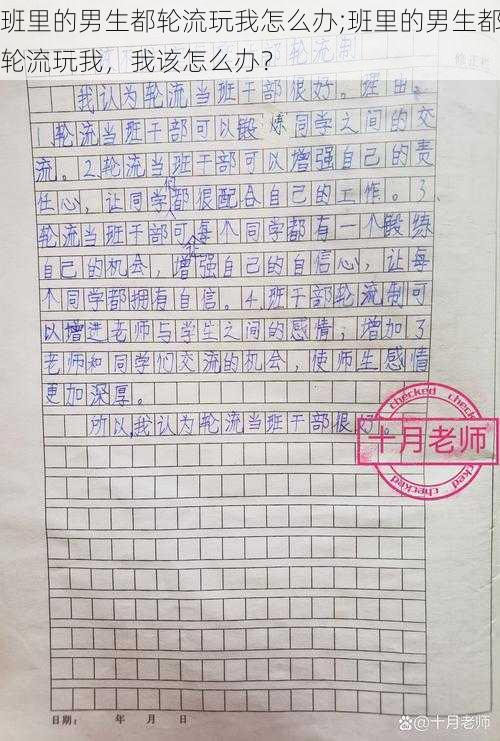 班里的男生都轮流玩我怎么办;班里的男生都
轮流玩我，我该怎么办？
我认为轮流当班干部很好。理由：
1.轮流当班干部可以锻炼同学之间的交
流。2.轮流当班干部可以增强自己的责
任心，让同学都很配合自己的工作。3、
轮流当班干部可每个同学都有一个锻练
自己的机会，增强自己的自信心，让每
个同学都拥有自信。4.班干部轮流制可
以增进老师与学生之间的感情，增加了
老师和同学们交流的机会，使师生感情
更加深厚。
所以,我认为轮流当班干部很好。
checked checked
十月老师
checked checked
日期： 年 月 日
@十月老师